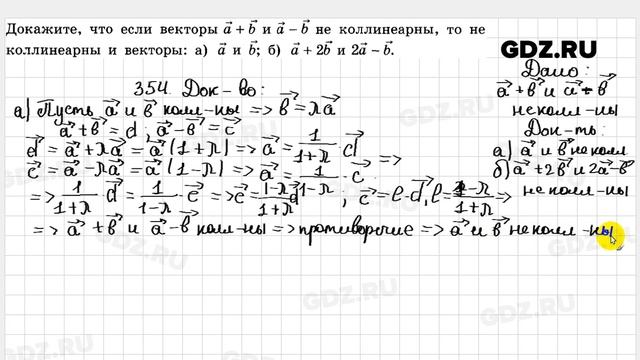 Докажите, что если векторы a⃗ + b⃗ и a⃗ − b⃗ не коллинеарны, то не
коллинеарны и векторы: а) a⃗ и b⃗; б) a⃗ + 2b⃗ и 2a⃗ − b⃗.
GDZ.RU
Дано:
a⃗ + b⃗ и a⃗ - b⃗
неколл-ны
Док-ть:
а) a⃗ и b⃗ неколл
б) a⃗ + 2b⃗ и 2a⃗ - b⃗
неколл-ны
354. Док-во:
а) Пусть a⃗ и b⃗ колл-ны => b⃗ = λa⃗
a⃗ + b⃗ = d⃗ ; a⃗ - b⃗ = c⃗
d⃗ = a⃗ + λa⃗ = a⃗ (1 + λ) => a⃗ = 1/(1+λ) · d⃗
=>
c⃗ = a⃗ - λa⃗ = a⃗ (1 - λ) => a⃗ = 1/(1-λ) · c⃗
=> 1/(1+λ) · d⃗ = 1/(1-λ) · c⃗ => c⃗ = (1-λ)/(1+λ) d⃗ , c⃗ = l · d⃗, l = (1-λ)/(1+λ) =>
=> a⃗ + b⃗ и a⃗ - b⃗ колл-ны => противоречие => a⃗ и b⃗ неколл-ны
GDZ.RU
GDZ.RU
GDZ.RU